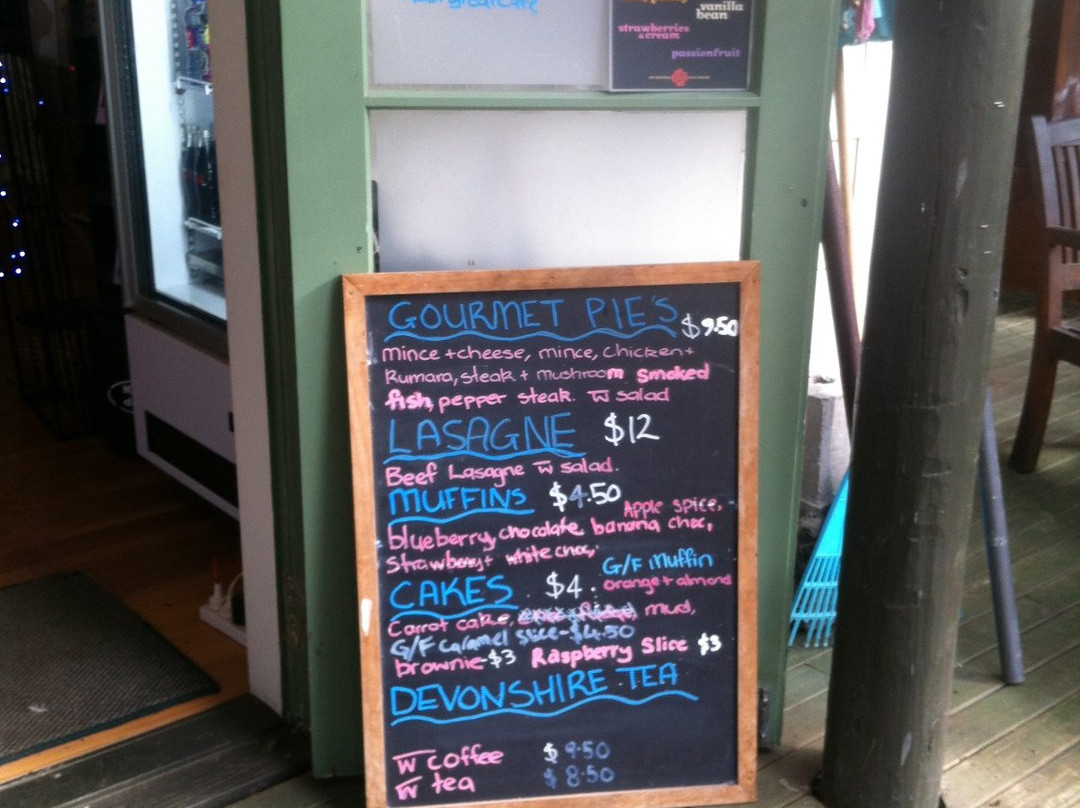 vanilla
bean
strawberries
& cream
passionfruit
GOURMET PIE'S $9.50
Mince + cheese, mince, Chicken +
Kumara, steak + mushroom smoked
fish, pepper steak. w̅ salad
LASAGNE $12
Beef Lasagne w̅ salad.
MUFFINS $4.50
Apple spice,
blueberry, chocolate, banana choc,
Strawberry + white choc,
G/F Muffin
orange + almond
CAKES $4.
Carrot cake, mud,
G/F Caramel Slice - $4.50
brownie - $3 Raspberry Slice $3
DEVONSHIRE TEA
w̅ coffee $9.50
w̅ tea $8.50